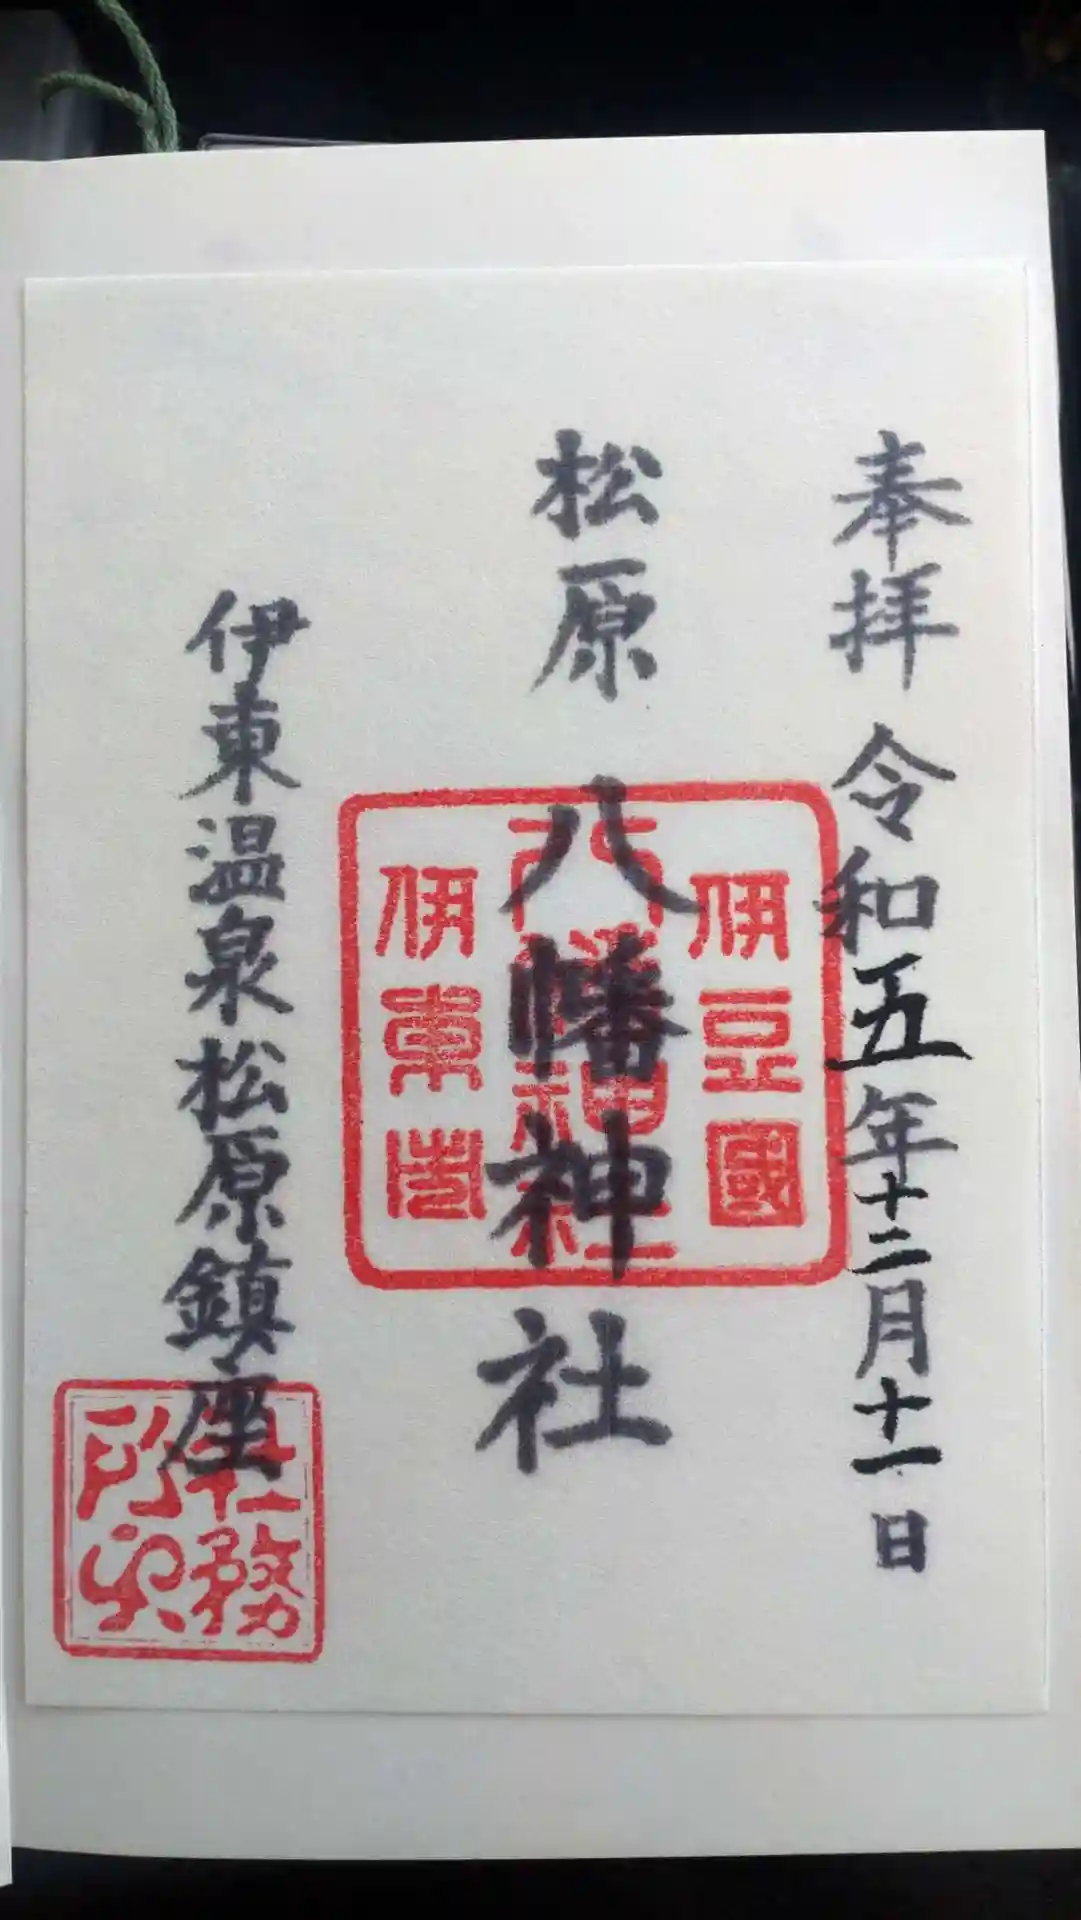 奉拝 令和五年十二月十一日
松原八幡神社
伊豆國
八幡神社
伊東市
伊東温泉松原鎮座
社務
所印